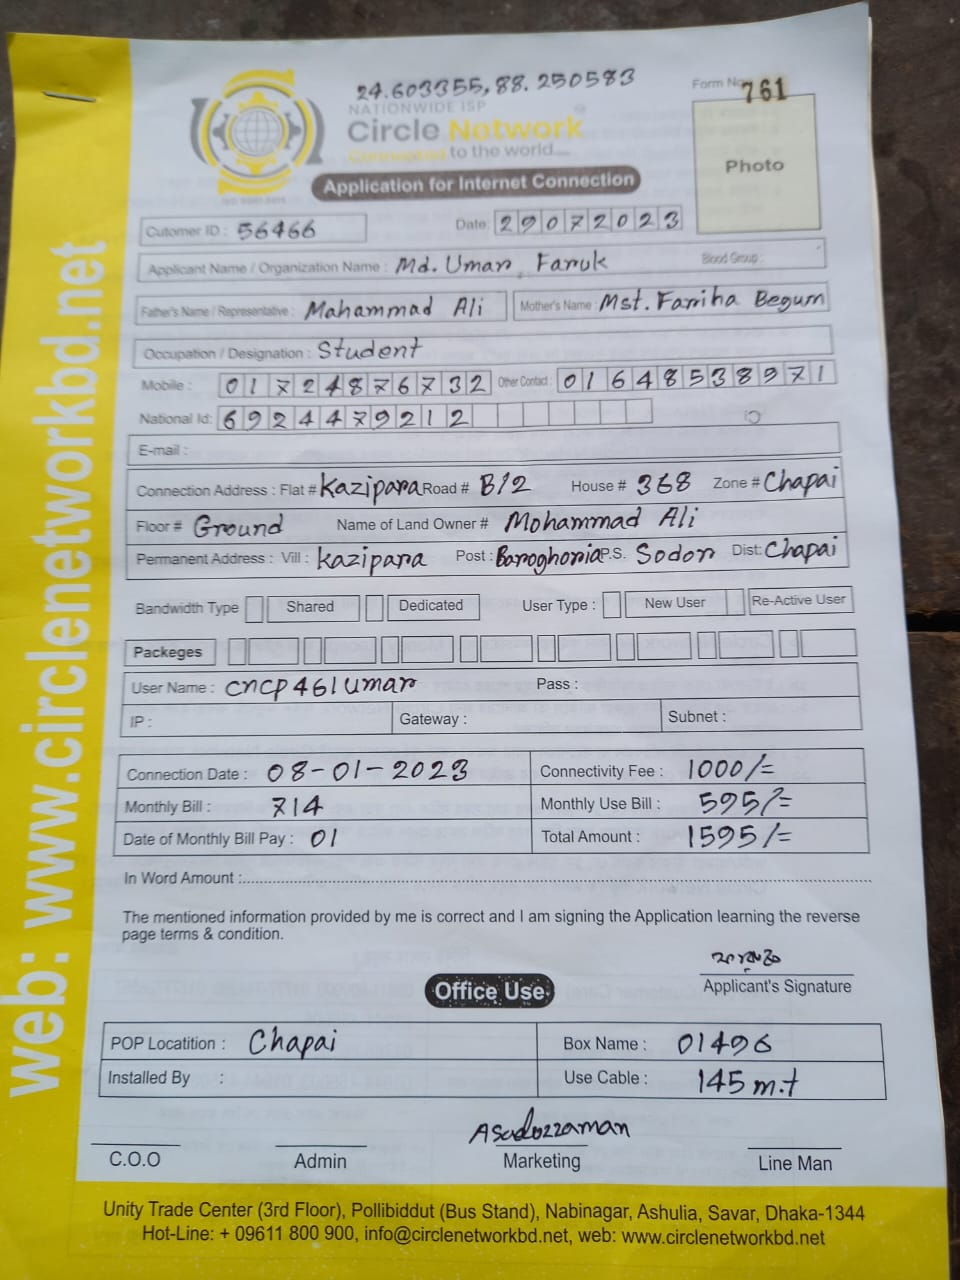 24.603355, 88.250583
Form No 761
NATIONWIDE ISP
Circle Network
Connected to the world....
Photo
Application for Internet Connection
Cutomer ID : 56466
Date: 29072023
Applicant Name / Organization Name : Md. Umar Faruk Blood Group :
Father's Name / Representative : Mahammad Ali Mother's Name : Mst. Farriha Begum
Occupation / Designation : Student
Mobile : 01724876732 Other Contact : 01648538971
National Id: 6924479212
E-mail :
Connection Address : Flat # Kazipara Road # B/2 House # 368 Zone # Chapai
Floor # Ground Name of Land Owner # Mohammad Ali
Permanent Address : Vill : Kazipara Post : Baroghoria P.S. Sodor Dist: Chapai
Bandwidth Type Shared Dedicated User Type : New User Re-Active User
Packeges
User Name : cncp461umar Pass :
IP : Gateway : Subnet :
Connection Date : 08-01-2023 Connectivity Fee : 1000/=
Monthly Bill : 714 Monthly Use Bill : 595/=
Date of Monthly Bill Pay : 01 Total Amount : 1595/=
In Word Amount :
The mentioned information provided by me is correct and I am signing the Application learning the reverse
page terms & condition.
Applicant's Signature
Office Use
POP Locatition : Chapai Box Name : 01496
Installed By : Use Cable : 145 m.t
Asadozzaman
C.O.O Admin Marketing Line Man
Unity Trade Center (3rd Floor), Pollibiddut (Bus Stand), Nabinagar, Ashulia, Savar, Dhaka-1344
Hot-Line: + 09611 800 900, info@circlenetworkbd.net, web: www.circlenetworkbd.net
web: www.circlenetworkbd.net